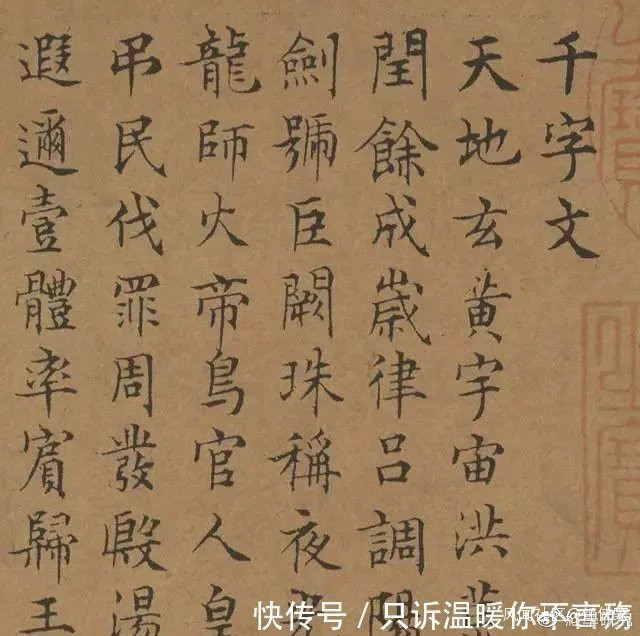 千字文
天地玄黃宇宙洪荒
閏餘成歲律呂調陽
劍號巨闕珠稱夜光
龍師火帝鳥官人皇
弔民伐罪周發殷湯
遐邇壹體率賓歸王
快传号／只诉温暖你不言殇